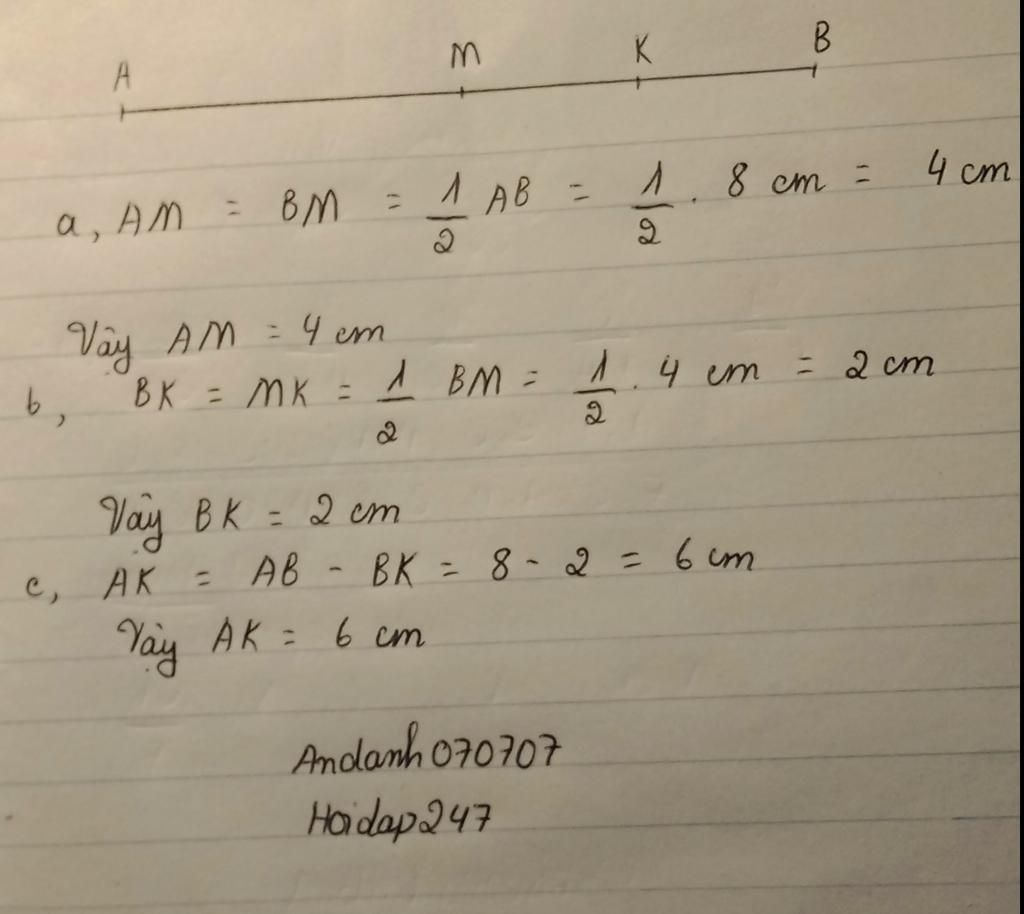 A M K B
a, AM = BM = 1/2 AB = 1/2 . 8 cm = 4 cm
Vậy AM = 4 cm
b, BK = MK = 1/2 BM = 1/2 . 4 cm = 2 cm
Vậy BK = 2 cm
c, AK = AB - BK = 8 - 2 = 6 cm
Vậy AK = 6 cm
Andanh070707
Hoidap247